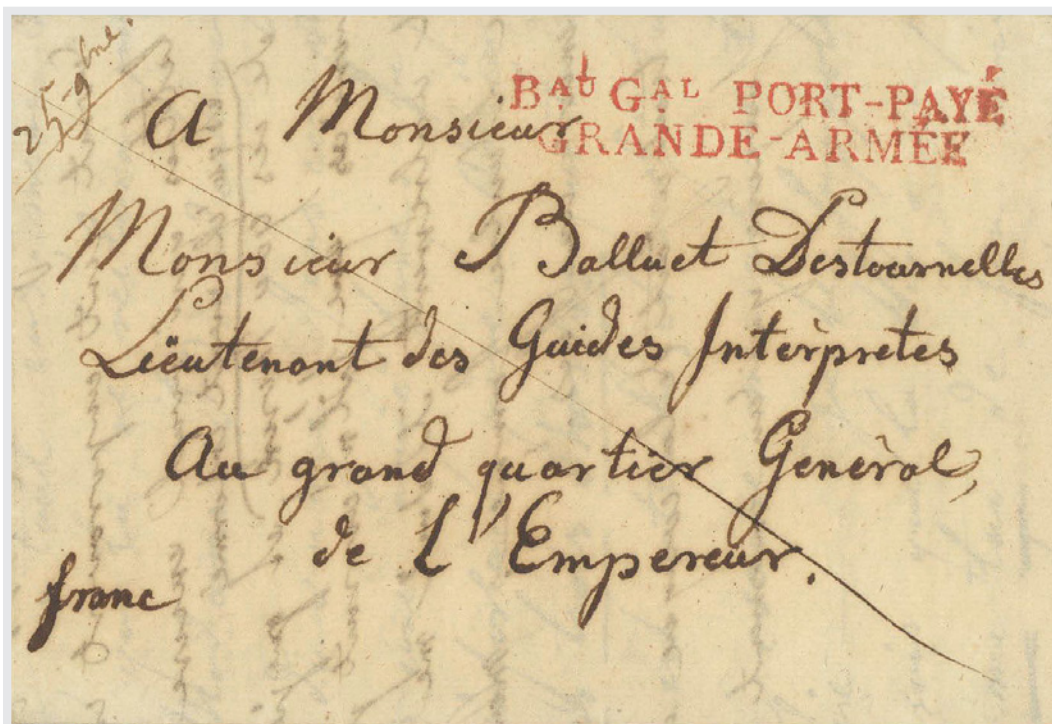 25 9bre.
BAU GAL PORT-PAYÉ
GRANDE-ARMÉE
A Monsieur
Monsieur Balluet Destournelles
Lieutenant des Guides Interprètes
Au grand quartier Général,
de L'Empereur.
franc